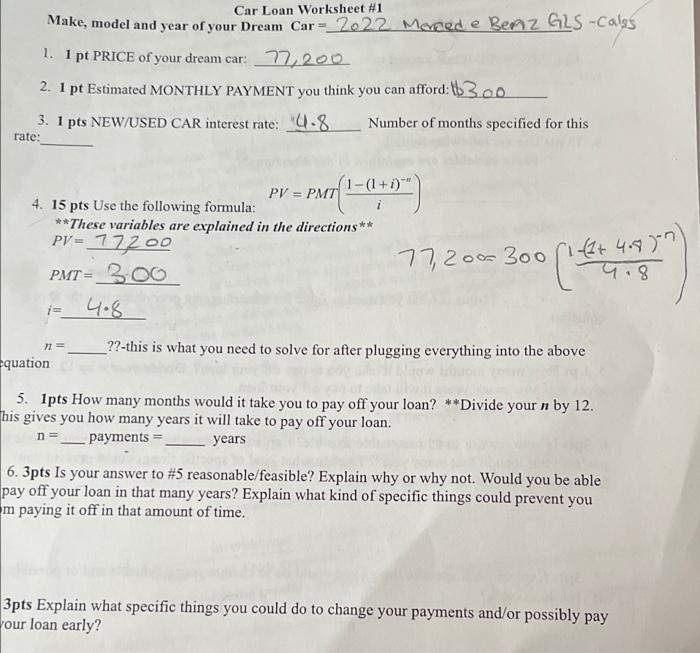 Car Loan Worksheet #1
Make, model and year of your Dream Car = 2022 Mercede Benz GLS-Calss
1. 1 pt PRICE of your dream car: 77,200
2. 1 pt Estimated MONTHLY PAYMENT you think you can afford: $300
3. 1 pts NEW/USED CAR interest rate: 4.8 Number of months specified for this
rate:
4. 15 pts Use the following formula: PV = PMT(1-(1+i)^-n / i)
**These variables are explained in the directions**
PV= 77200
77,200= 300 (1-(1+ 4.8)^-n / 4.8)
PMT= 300
i= 4.8
n = ____??-this is what you need to solve for after plugging everything into the above
equation
5. 1pts How many months would it take you to pay off your loan? **Divide your n by 12.
his gives you how many years it will take to pay off your loan.
n = ___ payments = ____ years
6. 3pts Is your answer to #5 reasonable/feasible? Explain why or why not. Would you be able
pay off your loan in that many years? Explain what kind of specific things could prevent you
m paying it off in that amount of time.
3pts Explain what specific things you could do to change your payments and/or possibly pay
our loan early?